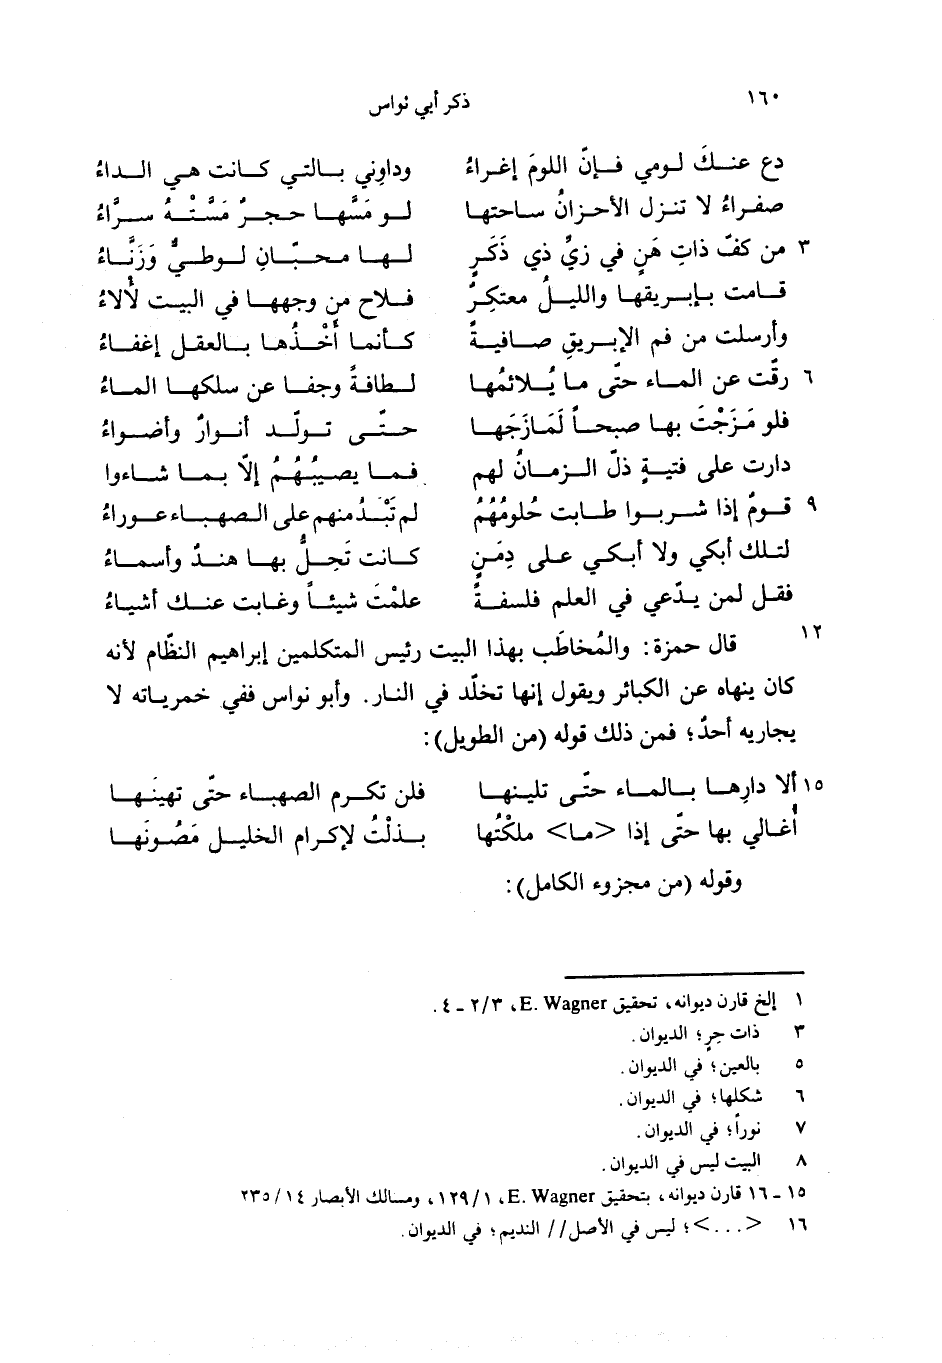 ١٦٠
ذكر أبي نواس
دع عنك لومي فإنّ اللومَ إغراءُ وداوِني بالتي كانت هي الداءُ
صفراءُ لا تنزل الأحزانُ ساحتها لو مَسَّها حجرٌ مَسَّتْهُ سرَّاءُ
٣ من كفّ ذاتِ هَنٍ في زيِّ ذي ذَكَرٍ لها محبّانِ لوطيٌّ وَزَنَّاءُ
قامت بإبريقها والليلُ معتكِرٌ فلاح من وجهها في البيت لألاءُ
وأرسلت من فم الإبريقِ صافيةً كأنما أَخْذُها بالعقل إغفاءُ
٦ رقّت عن الماء حتّى ما يُلائمُها لطافةً وجفا عن سلكها الماءُ
فلو مَزَجْتَ بها صبحاً لَمَازَجَها حتّى تولّد أنوارٌ وأضواءُ
دارت على فتيةٍ ذلّ الزمانُ لهم فما يصيبُهُمُ إلاّ بما شاءوا
٩ قومٌ إذا شربوا طابت حُلومُهُمُ لم تَبْدُ منهم على الصهباء عوراءُ
لتلك أبكي ولا أبكي على دِمَنٍ كانت تَحِلُّ بها هندٌ وأسماءُ
فقل لمن يدّعي في العلم فلسفةً علمْتَ شيئاً وغابت عنك أشياءُ
١٢ قال حمزة: والمُخاطَب بهذا البيت رئيس المتكلمين إبراهيم النظّام لأنه
كان ينهاه عن الكبائر ويقول إنها تخلّد في النار. وأبو نواس ففي خمرياته لا
يجاريه أحدٌ؛ فمن ذلك قوله (من الطويل):
١٥ ألا دارِها بالماء حتّى تلينها فلن تكرم الصهباء حتّى تهينها
أُغالي بها حتّى إذا <ما> ملكْتُها بذلْتُ لإكرام الخليل مَصُونَها
وقوله (من مجزوء الكامل):
١ إلخ قارن ديوانه، تحقيق E. Wagner، ٢/٣ ـ ٤.
٣ ذات حِرٍ؛ الديوان.
٥ بالعين؛ في الديوان.
٦ شكلها؛ في الديوان.
٧ نوراً؛ في الديوان.
٨ البيت ليس في الديوان.
١٥ ـ ١٦ قارن ديوانه، بتحقيق E. Wagner، ١/ ١٢٩، ومسالك الأبصار ١٤/ ٢٣٥
١٦ <...>؛ ليس في الأصل// النديم؛ في الديوان.